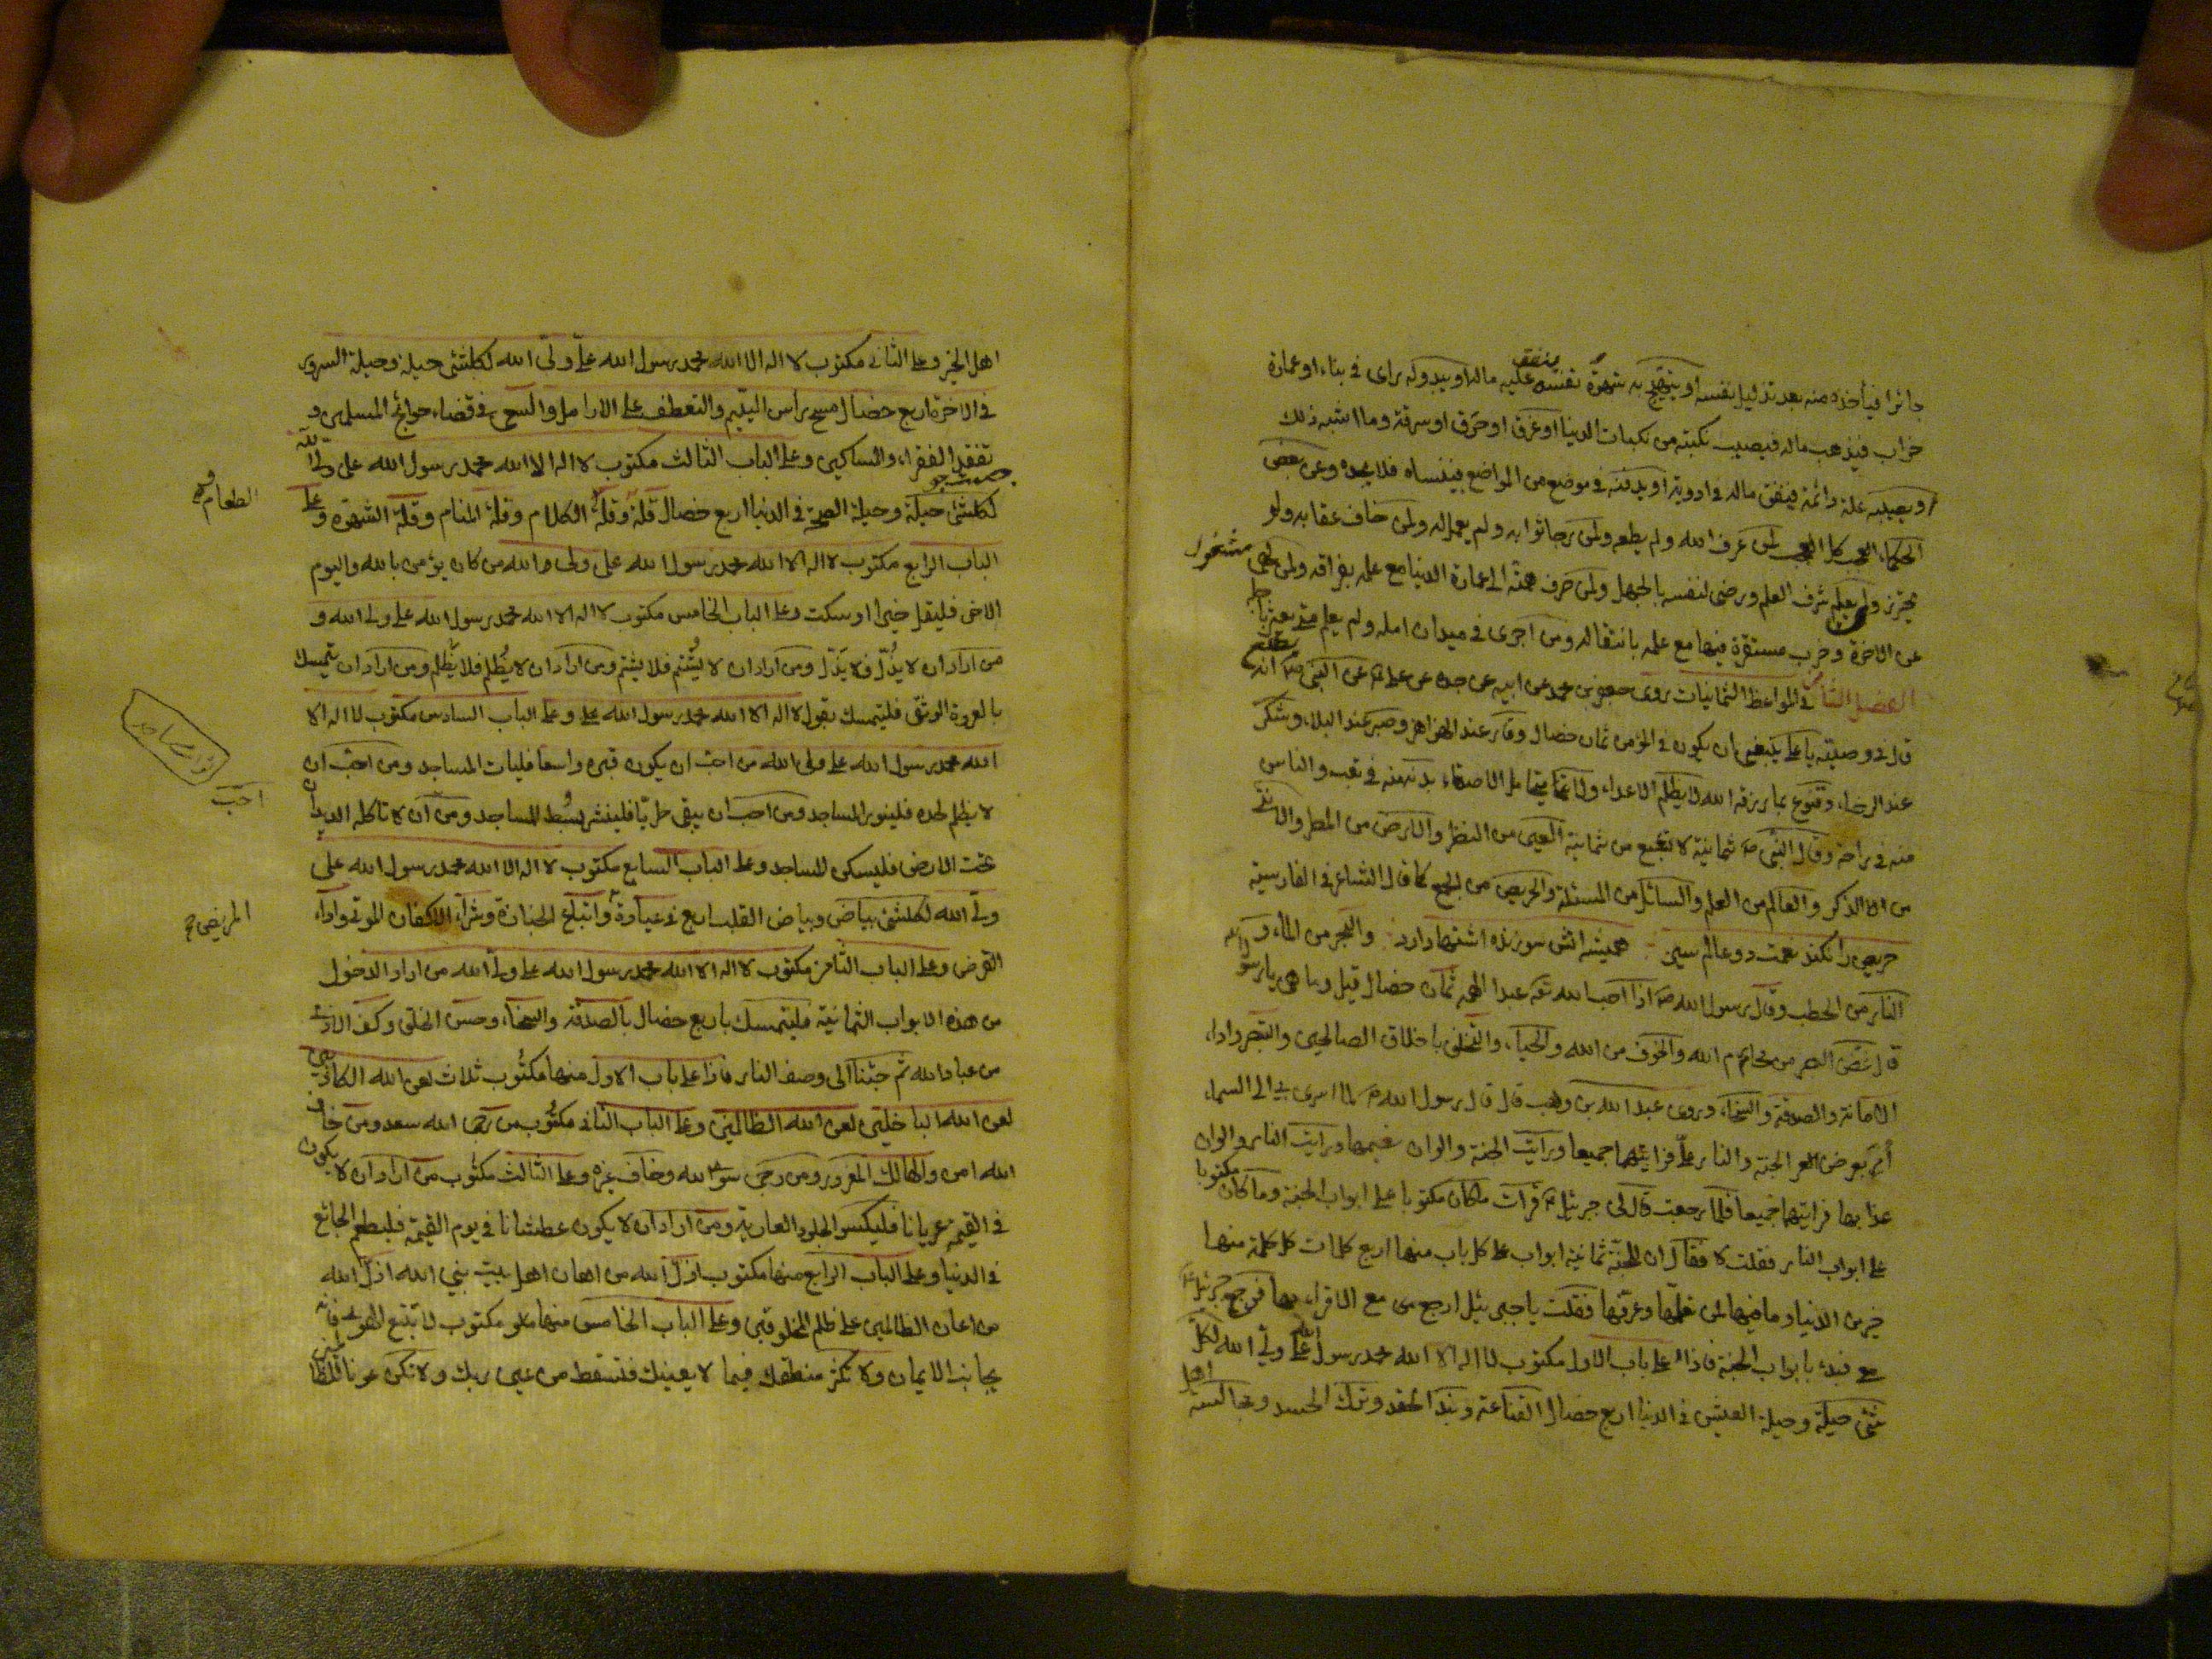 جائرا فيأخذه منه بعد تذليل نفسه او يتهيج به شهوة نفسه فينفق عليه ماله او يبدو له راى فى بناء او عمارة
خراب فيذهب ماله فيصيب نكبته من نكبات الدنيا او غرق او حرق او سرقة وما اشبه ذلك
او يصيبه علة دائمة فينفق ماله فى ادويته او يدفنه فى موضع من المواضع فينساه فلا يجده وعن بعض
الحكماء العجب كل العجب لمن عرف الله ولم يطعه ولمن رجا ثوابه ولم يعمل له ولمن خاف عقابه ولم
يحترز ولمن يعلم شرف العلم ورضى لنفسه بالجهل ولمن صرف همته الى عمارة الدنيا مع علمه بفراقه ولمن لهى مشغول
عن الاخرة وخرب مستقره فيها مع علمه بانتقاله ومن اجرى فى ميدان امله ولم يعلم متى يعثر باجله
الفصل الثامن فى المواعظ الثمانيات روى جعفر بن محمد عن ابيه عن جده عن على عن النبى ص انه
قال فى وصيته يا على ينبغى ان يكون فى المؤمن ثمان خصال وقار عند الهزاهز وصبر عند البلاء وشكر
عند الرخاء وقنوع بما رزقه الله لا يظلم الاعداء ولا يتحامل الاصدقاء بدنه منه فى تعب والناس
منه فى راحة وقال النبى ص ثمانية لا تشبع من ثمانية العين من النظر والارض من المطر والانثى
من الذكر والعالم من العلم والسائل من المسئلة والحريص من الجمع كما قال الشاعر فى الفارسية
حريص را نكند نعمت دو عالم سير هميشه اتش سوزنده اشتها دارد والبحر من الماء و
النار من الحطب وقال رسول الله ص اذا احب الله تعه عبدا الهمه ثمان خصال قيل وما هى يا رسول الله
قال غض البصر من محارم الله والخوف من الله والحياء والتخلق باخلاق الصالحين والصبر واداء
الامانة والصدقة والسخاء وروى عبد الله بن وهب قال قال رسول الله ص لما اسرى بى الى السماء
أمر بعرض الجنة والنار على فرايتهما جميعا ورايت الجنة والوان نعيمها ورايت النار والوان
عذابها فرايتهما جميعا فلما رجعت قال لى جبرئيل ع قرات ما كان مكتوبا على ابواب الجنة وما كان مكتوبا
على ابواب النار فقلت لا فقال ان للجنة ثمانية ابواب على كل باب منها اربع كلمات كل كلمة منها
خير من الدنيا وما فيها لمن علمها وعرفها فقلت يا جبرئيل ارجع معى مع الاقراء بها فرجع جبرئيل ع
معى فبدء بابواب الجنة فاذا على باب الاول مكتوب لا اله الا الله محمد رسول الله على ولى الله لكل
شئ حيلة وحيلة العيش فى الدنيا اربع خصال القناعة ونبذ الحقد وترك الحسد ومجالسة اهل
اهل الخير وعلى الثانى مكتوب لا اله الا الله محمد رسول الله على ولى الله لكلشئ حيلة وحيلة السرور
فى الاخرة اربع خصال مسح راس اليتيم والتعطف على الارامل والسعى فى قضاء حوائج المسلمين و
تفقد الفقراء والمساكين وعلى الباب الثالث مكتوب لا اله الا الله محمد رسول الله على ولى الله
لكلشئ حيلة وحيلة الصحة فى الدنيا اربع خصال قلة وقلة الكلام وقلة المنام وقلة الشهوة وعلى
الطعام
الباب الرابع مكتوب لا اله الا الله محمد رسول الله على ولى الله من كان يؤمن بالله واليوم
الاخر فليقل خيرا او سكت وعلى الباب الخامس مكتوب لا اله الا الله محمد رسول الله على ولى الله و
من اراد ان لا يذل فلا يذل ومن اراد ان لا يشتم فلا يشتم ومن اراد ان لا يظلم فلا يظلم ومن اراد ان يتمسك
بالعروة الوثقى فليتمسك بقول لا اله الا الله محمد رسول الله على وعلى الباب السادس مكتوب لا اله الا
الله محمد رسول الله على ولى الله من احب ان يكون قبره واسعا فليأت المساجد ومن احب ان
احب
لا يظلم لحده فلينور المساجد ومن احب ان يبقى طريا فلينشر بسط المساجد ومن ان لا تاكله الديدان
تحت الارض فليسكن المساجد وعلى الباب السابع مكتوب لا اله الا الله محمد رسول الله على
ولى الله لكلشئ بياض وبياض القلب اربع فى عيادة واتباع الجنازة وشراء الاكفان الموتى واداء
المريض
القرض وعلى الباب الثامن مكتوب لا اله الا الله محمد رسول الله على ولى الله من اراد الدخول
من هذه الابواب الثمانية فليتمسك باربع خصال بالصدقة والسخاء وحسن الخلق وكف الاذى
من عباد الله ثم جئنا الى وصف النار فاذا على باب الاول منها مكتوب ثلاث لعن الله الكاذبين
لعن الله الباخلين لعن الله الظالمين وعلى الباب الثانى مكتوب من رجى الله سعد ومن خاف
الله امن والهالك المغرور ومن رجى سوى الله وخاف غيره وعلى الثالث مكتوب من اراد ان لا يكون
فى القيمة عريانا فليكسو الجلود العارية ومن اراد ان لا يكون عطشانا فى يوم القيمة فليطعم الجائع
فى الدنيا وعلى الباب الرابع منها مكتوب اذل الله من اهان اهل بيت نبى الله اذل الله
من اعان الظالمين على ظلم المخلوقين وعلى الباب الخامس منها مكتوب لا تتبع الهوى فانه
يجانب الايمان ولا تكثر منطقك فيما لا يعنيك فتسقط من عين ربك ولا تكن عونا للظالمين